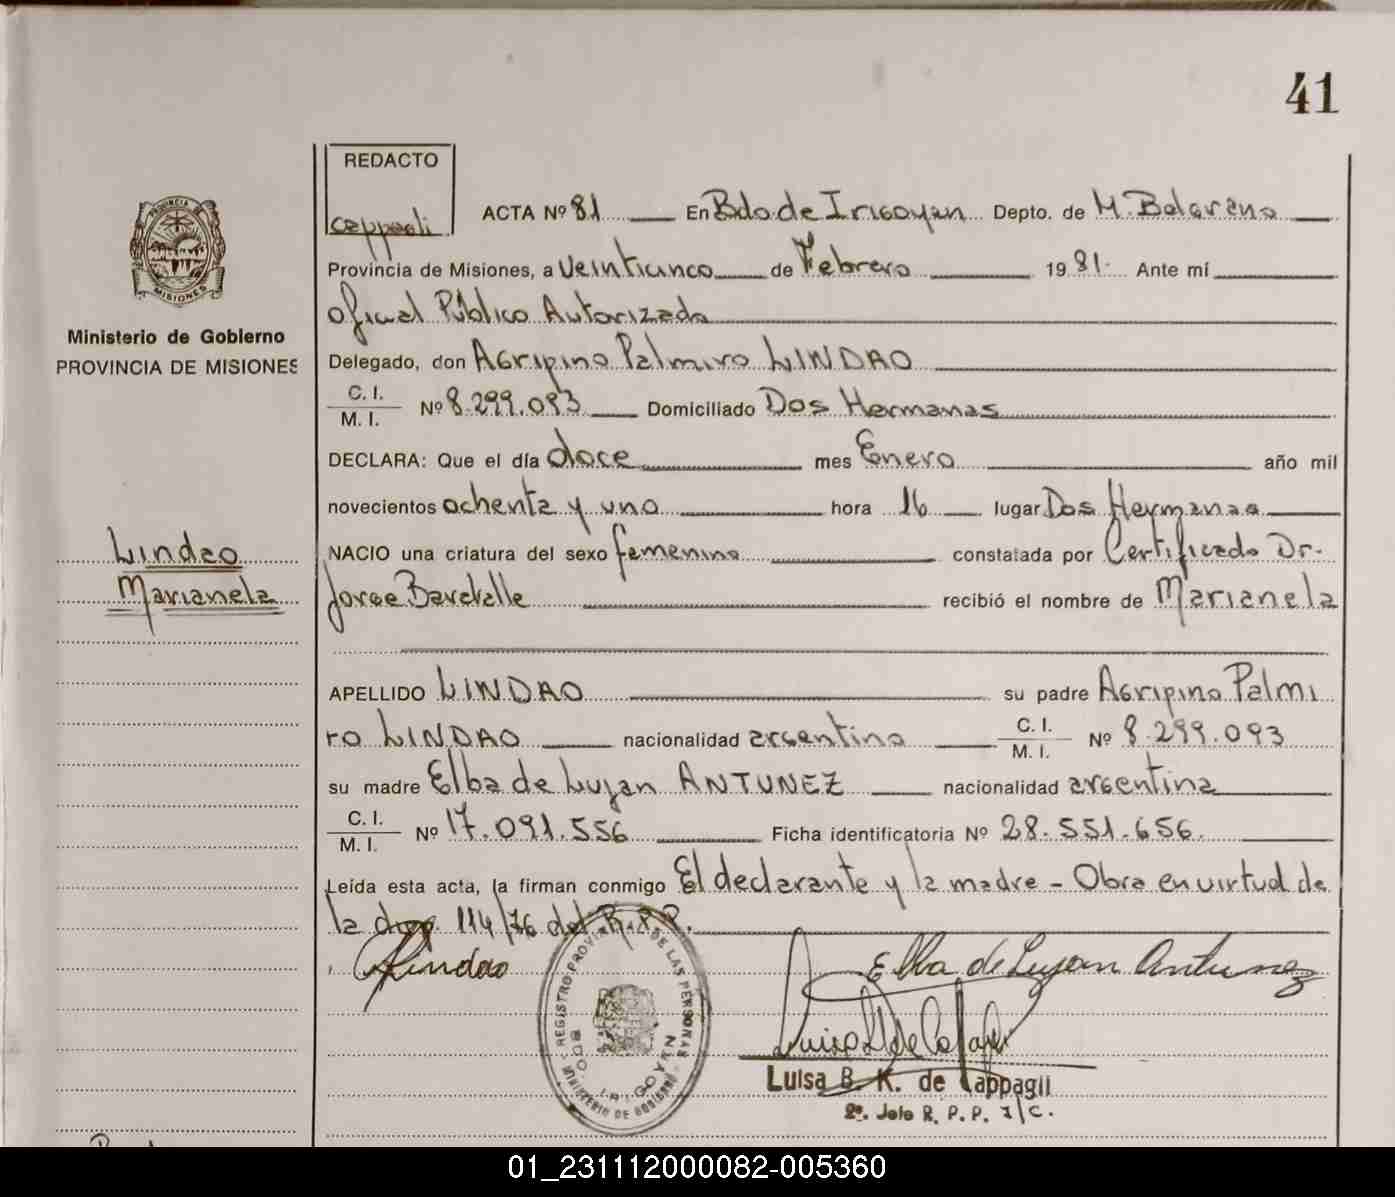 41
REDACTO
Cappagli
ACTA Nº 81 En Bdo de Irigoyen Depto. de M. Belgrano
PROVINCIA DE MISIONES
Provincia de Misiones, a veinticinco de Febrero 1981. Ante mí
Oficial Público Autorizado
Ministerio de Gobierno
PROVINCIA DE MISIONES
Delegado, don Agripino Palmiro LINDAO
C. I.
M. I. Nº 8.299.093 Domiciliado Dos Hermanas
DECLARA: Que el día doce mes Enero año mil
novecientos ochenta y uno hora 16 lugar Dos Hermanas
Lindao
Marianela
NACIO una criatura del sexo femenino constatada por Certificado Dr.
Jorge recibió el nombre de Marianela
APELLIDO LINDAO su padre Agripino Palmi
ro LINDAO nacionalidad argentino C. I.
M. I. Nº 8.299.093
su madre Elba de Lujan ANTUNEZ nacionalidad argentina
C. I.
M. I. Nº 17.091.556 Ficha identificatoria Nº 28.551.656.
Leída esta acta, la firman conmigo El declarante y la madre - Obra en virtud de
la disp. 114/76 del R.P.P.
Lindao Elba de Lujan Antunez
REGISTRO PROVINCIAL DE LAS PERSONAS
BDO. IRIGOYEN
MINISTERIO DE GOBIERNO
Luisa B. K. de Cappagli
2º. Jefe R. P. P. I/C.
01_231112000082-005360